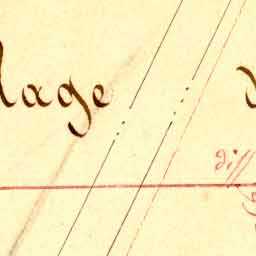 lage
diff